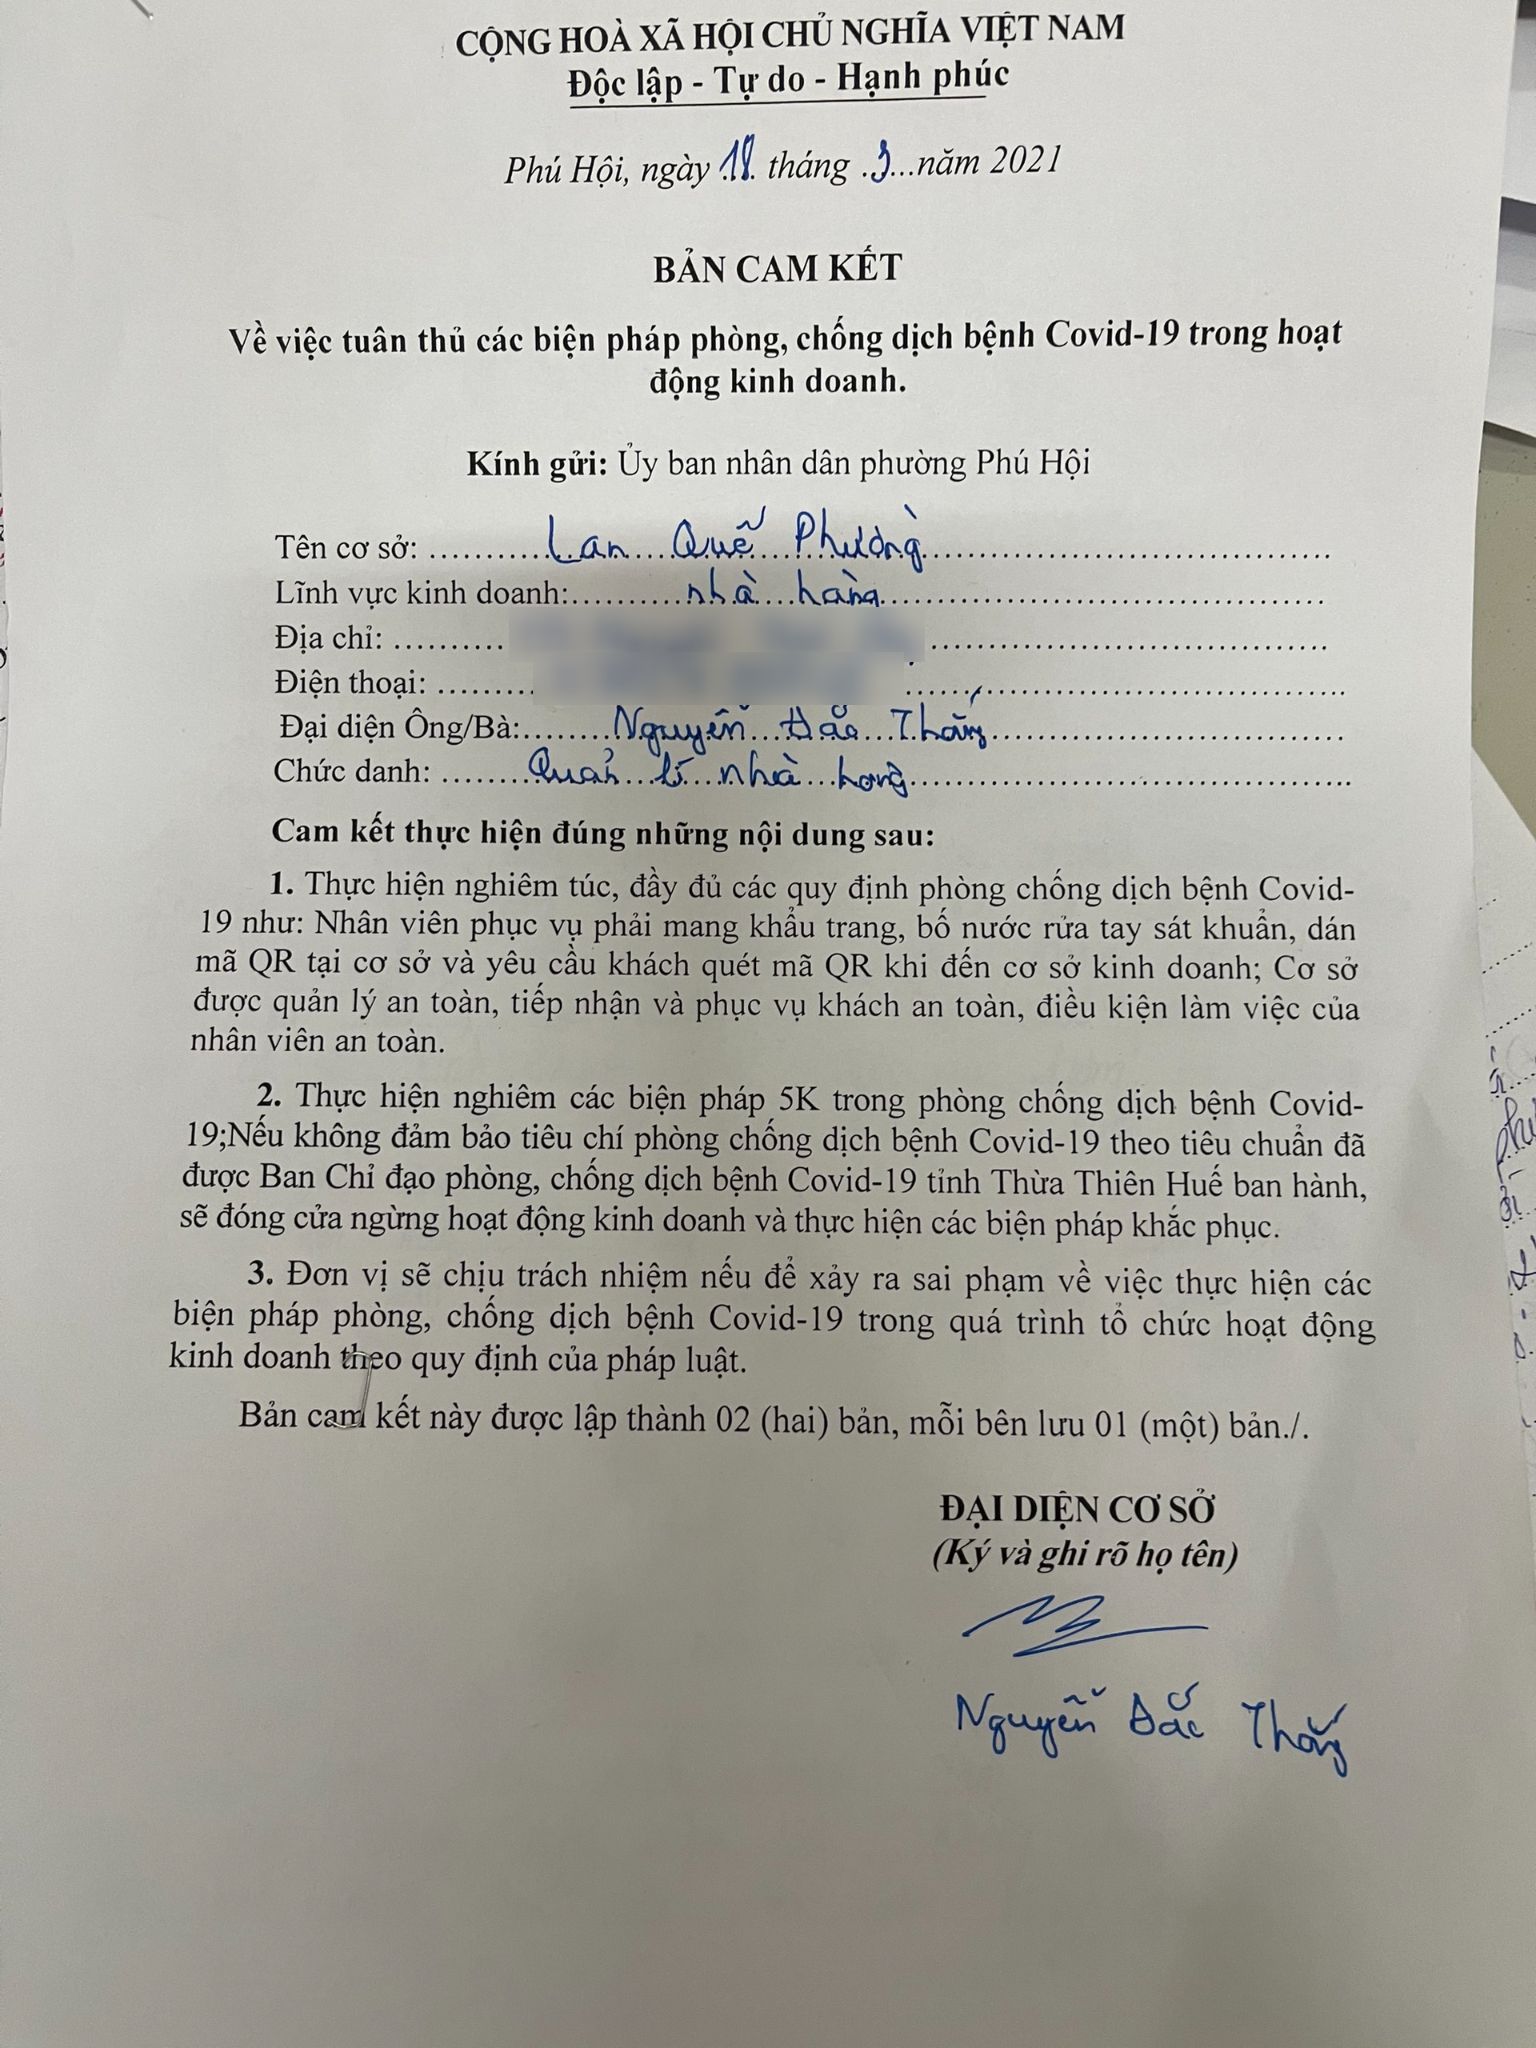 CỘNG HOÀ XÃ HỘI CHỦ NGHĨA VIỆT NAM
Độc lập - Tự do - Hạnh phúc
Phú Hội, ngày 18 tháng .3...năm 2021
BẢN CAM KẾT
Về việc tuân thủ các biện pháp phòng, chống dịch bệnh Covid-19 trong hoạt
động kinh doanh.
Kính gửi: Ủy ban nhân dân phường Phú Hội
Tên cơ sở: Lan Quế Phường
Lĩnh vực kinh doanh: nhà hàng
Địa chỉ:
Điện thoại:
Đại diện Ông/Bà: Nguyễn Đắc Thắng
Chức danh: Quản lí nhà hàng
Cam kết thực hiện đúng những nội dung sau:
1. Thực hiện nghiêm túc, đầy đủ các quy định phòng chống dịch bệnh Covid-
19 như: Nhân viên phục vụ phải mang khẩu trang, bố nước rửa tay sát khuẩn, dán
mã QR tại cơ sở và yêu cầu khách quét mã QR khi đến cơ sở kinh doanh; Cơ sở
được quản lý an toàn, tiếp nhận và phục vụ khách an toàn, điều kiện làm việc của
nhân viên an toàn.
2. Thực hiện nghiêm các biện pháp 5K trong phòng chống dịch bệnh Covid-
19;Nếu không đảm bảo tiêu chí phòng chống dịch bệnh Covid-19 theo tiêu chuẩn đã
được Ban Chỉ đạo phòng, chống dịch bệnh Covid-19 tỉnh Thừa Thiên Huế ban hành,
sẽ đóng cửa ngừng hoạt động kinh doanh và thực hiện các biện pháp khắc phục.
3. Đơn vị sẽ chịu trách nhiệm nếu để xảy ra sai phạm về việc thực hiện các
biện pháp phòng, chống dịch bệnh Covid-19 trong quá trình tổ chức hoạt động
kinh doanh theo quy định của pháp luật.
Bản cam kết này được lập thành 02 (hai) bản, mỗi bên lưu 01 (một) bản./.
ĐẠI DIỆN CƠ SỞ
(Ký và ghi rõ họ tên)
Nguyễn Đắc Thắng